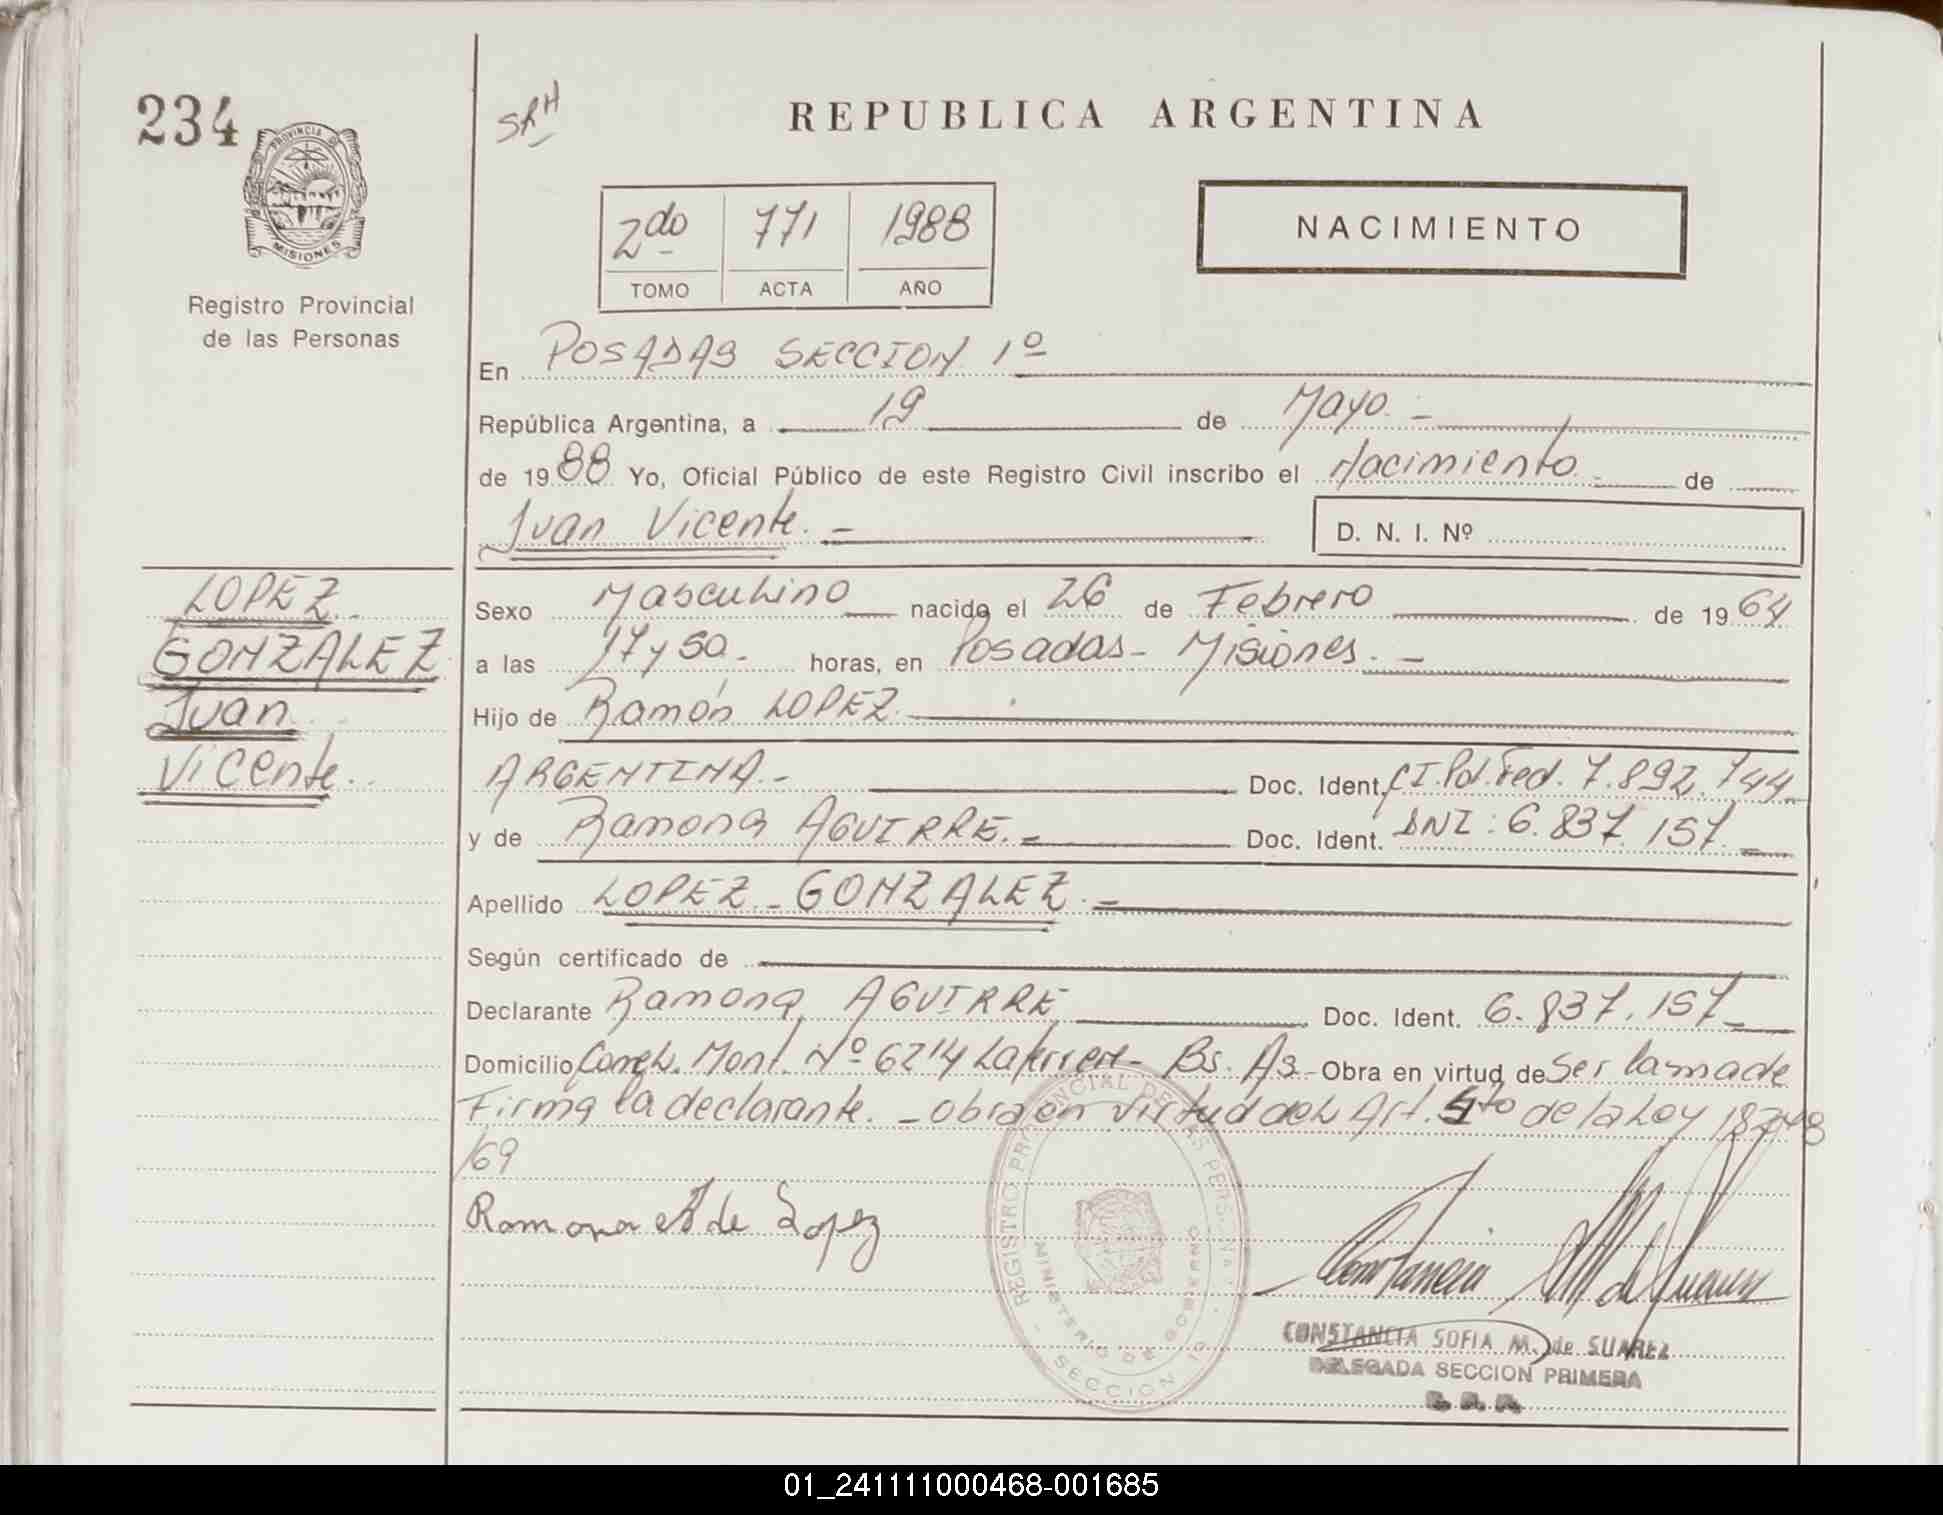 234
PROVINCIA DE
MISIONES
Registro Provincial
de las Personas
SRH
REPUBLICA ARGENTINA
2do 771 1988
TOMO ACTA AÑO
NACIMIENTO
En POSADAS SECCION 1º
República Argentina, a 19 de Mayo.-
de 1988 Yo, Oficial Público de este Registro Civil inscribo el Nacimiento de
Juan Vicente.- D. N. I. Nº
LOPEZ
GONZALEZ
Juan
Vicente.
Sexo Masculino nacido el 26 de Febrero de 1964
a las 17 y 50.- horas, en Posadas- Misiones.-
Hijo de Ramón LOPEZ.
ARGENTINA.- Doc. Ident. CI.Pol.Fed. 7.892.744
y de Ramona AGUIRRE.- Doc. Ident. DNI: 6.837.157.-
Apellido LOPEZ - GONZALEZ.-
Según certificado de
Declarante Ramona AGUIRRE Doc. Ident. 6.837.157-
Domicilio Mont. Nº 6214 Laferrere- Bs. As.- Obra en virtud de ser la madre
Firma la declarante.- obra en virtud del Art. 5to de la Ley 18248
/69
Ramona A de Lopez
Constancia M de Suarez
REGISTRO PROVINCIAL DE LAS PERSONAS
MINISTERIO DE GOBIERNO
SECCION 1º
CONSTANCIA SOFIA M. de SUAREZ
DELEGADA SECCION PRIMERA
01_241111000468-001685